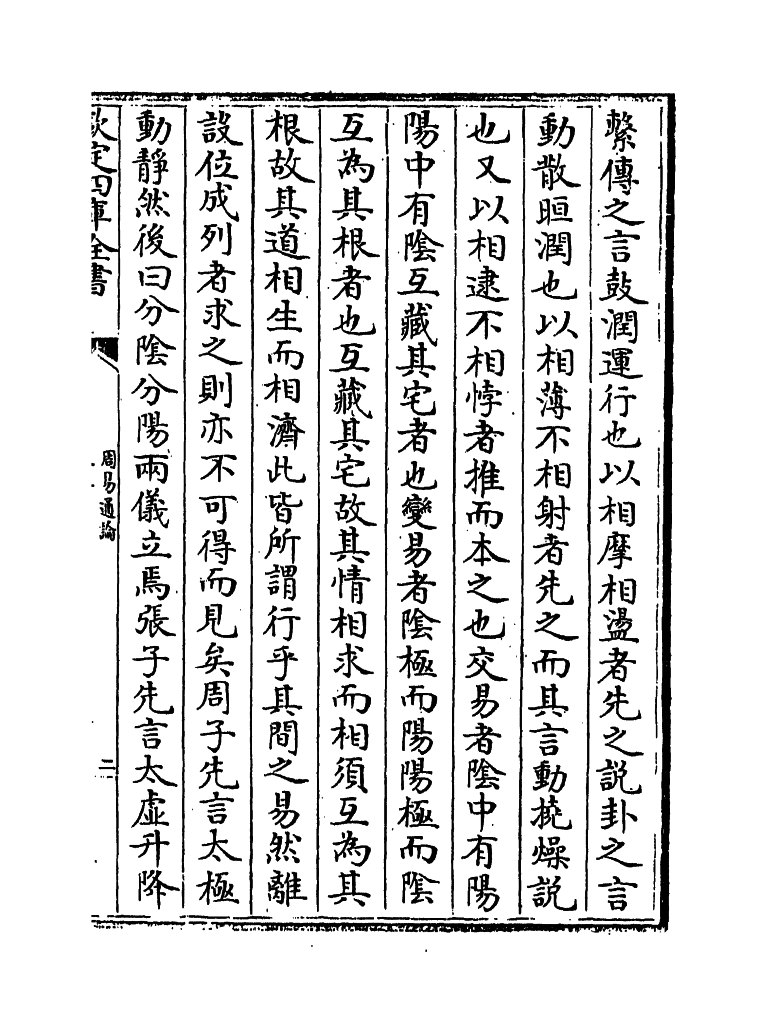 繫傳之言鼓潤運行也以相摩相盪者先之説卦之言
動散晅潤也以相薄不相射者先之而其言動撓燥説
也又以相逮不相悖者推而本之也交易者陰中有陽
陽中有陰互藏其宅者也變易者陰極而陽陽極而陰
互為其根者也互藏其宅故其情相求而相須互為其
根故其道相生而相濟此皆所謂行乎其間之易然離
設位成列者求之則亦不可得而見矣周子先言太極
動靜然後曰分陰分陽兩儀立焉張子先言太虛升降
欽定四庫全書
周易通論
二